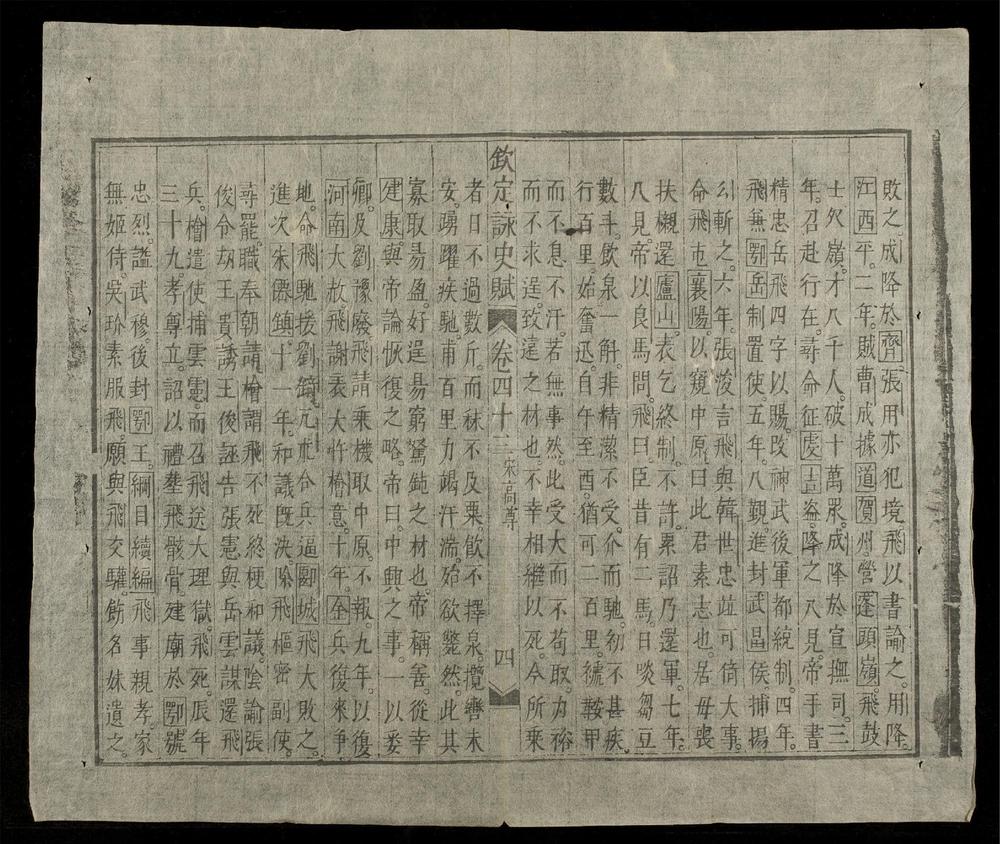 敗之。成降於齊。張用亦犯境。飛以書諭之。用降。
江西平。二年。賊曹成據道賀州。營蓬頭嶺。飛鼓
士欠嶺。才八千人。破十萬眾。成降於宣撫司。三
年。召赴行在。尋命征虔吉盜。降之。入見。帝手書
精忠岳飛四字以賜。改神武後軍都統制。四年。
飛無鄂岳制置使。五年。八覲。進封武昌侯。捕揚
幺斬之。六年。張浚言飛與韓世忠竝可倚大事。
命飛屯襄陽以窺中原。曰此君素志也。居母喪
扶櫬還廬山。表乞終制。不許。累詔乃還軍。七年。
八見。帝以良馬問。飛曰。臣昔有二馬。日啖芻豆
數斗。飲泉一斛。非精潔不受。介而馳。初不甚疾。
行百里。始奮迅。自午至酉。猶可二百里。褫鞍甲
而不息不汗。若無事然。此受大而不苟取。力裕
而不求逞。致遠之材也。不幸相繼以死。今所來
欽定詠史賦 卷四十三 宋高尊 四
者日不過數斤。而秣不及粟。飲不擇泉。攬轡未
安。踴躍疾馳。甫百里力竭汗湍。殆欲斃然。此其
寡取易盈。好逞易窮。駑鈍之材也。帝稱善。從幸
建康。與帝論恢復之略。帝曰。中興之事。一以委
卿。及劉豫廢。飛請乘機取中原。不報。九年。以復
河南大赦。飛謝表大忤檜意。十年。金兵復來爭
地。命飛馳援劉錡。兀朮合兵逼郾城。飛大敗之。
進次朱僊鎮。十一年。和議既決。除飛樞密副使。
尋罷職奉朝請。檜謂飛不死終梗和議。陰諭張
俊令刧王貴誘王後誣告張憲與岳雲謀還飛
兵。檜遣使捕雲憲。而召飛送大理獄。飛死。辰年
三十九。孝尊立。詔以禮塟飛骸骨。建廟於鄂。號
忠烈。諡武穆。後封鄂王。綱目續編飛事親孝。家
無姬侍。吳玠素服飛。願與飛交驩。飾名妹遺之。